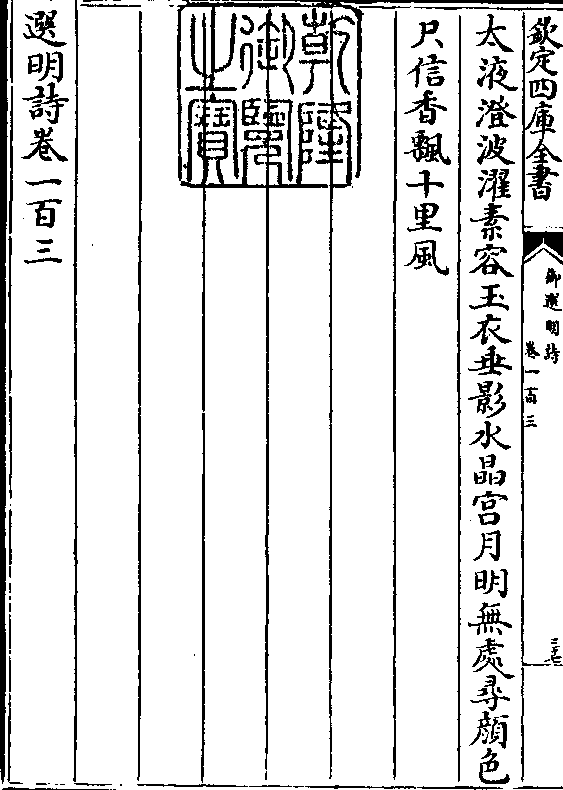 欽定四庫全書
御選明詩
卷一百三
太液澄波濯素容玉衣垂影水晶宮月明無處尋顔色
只信香飄十里風
乾隆
御覽
之寶
選明詩卷一百三